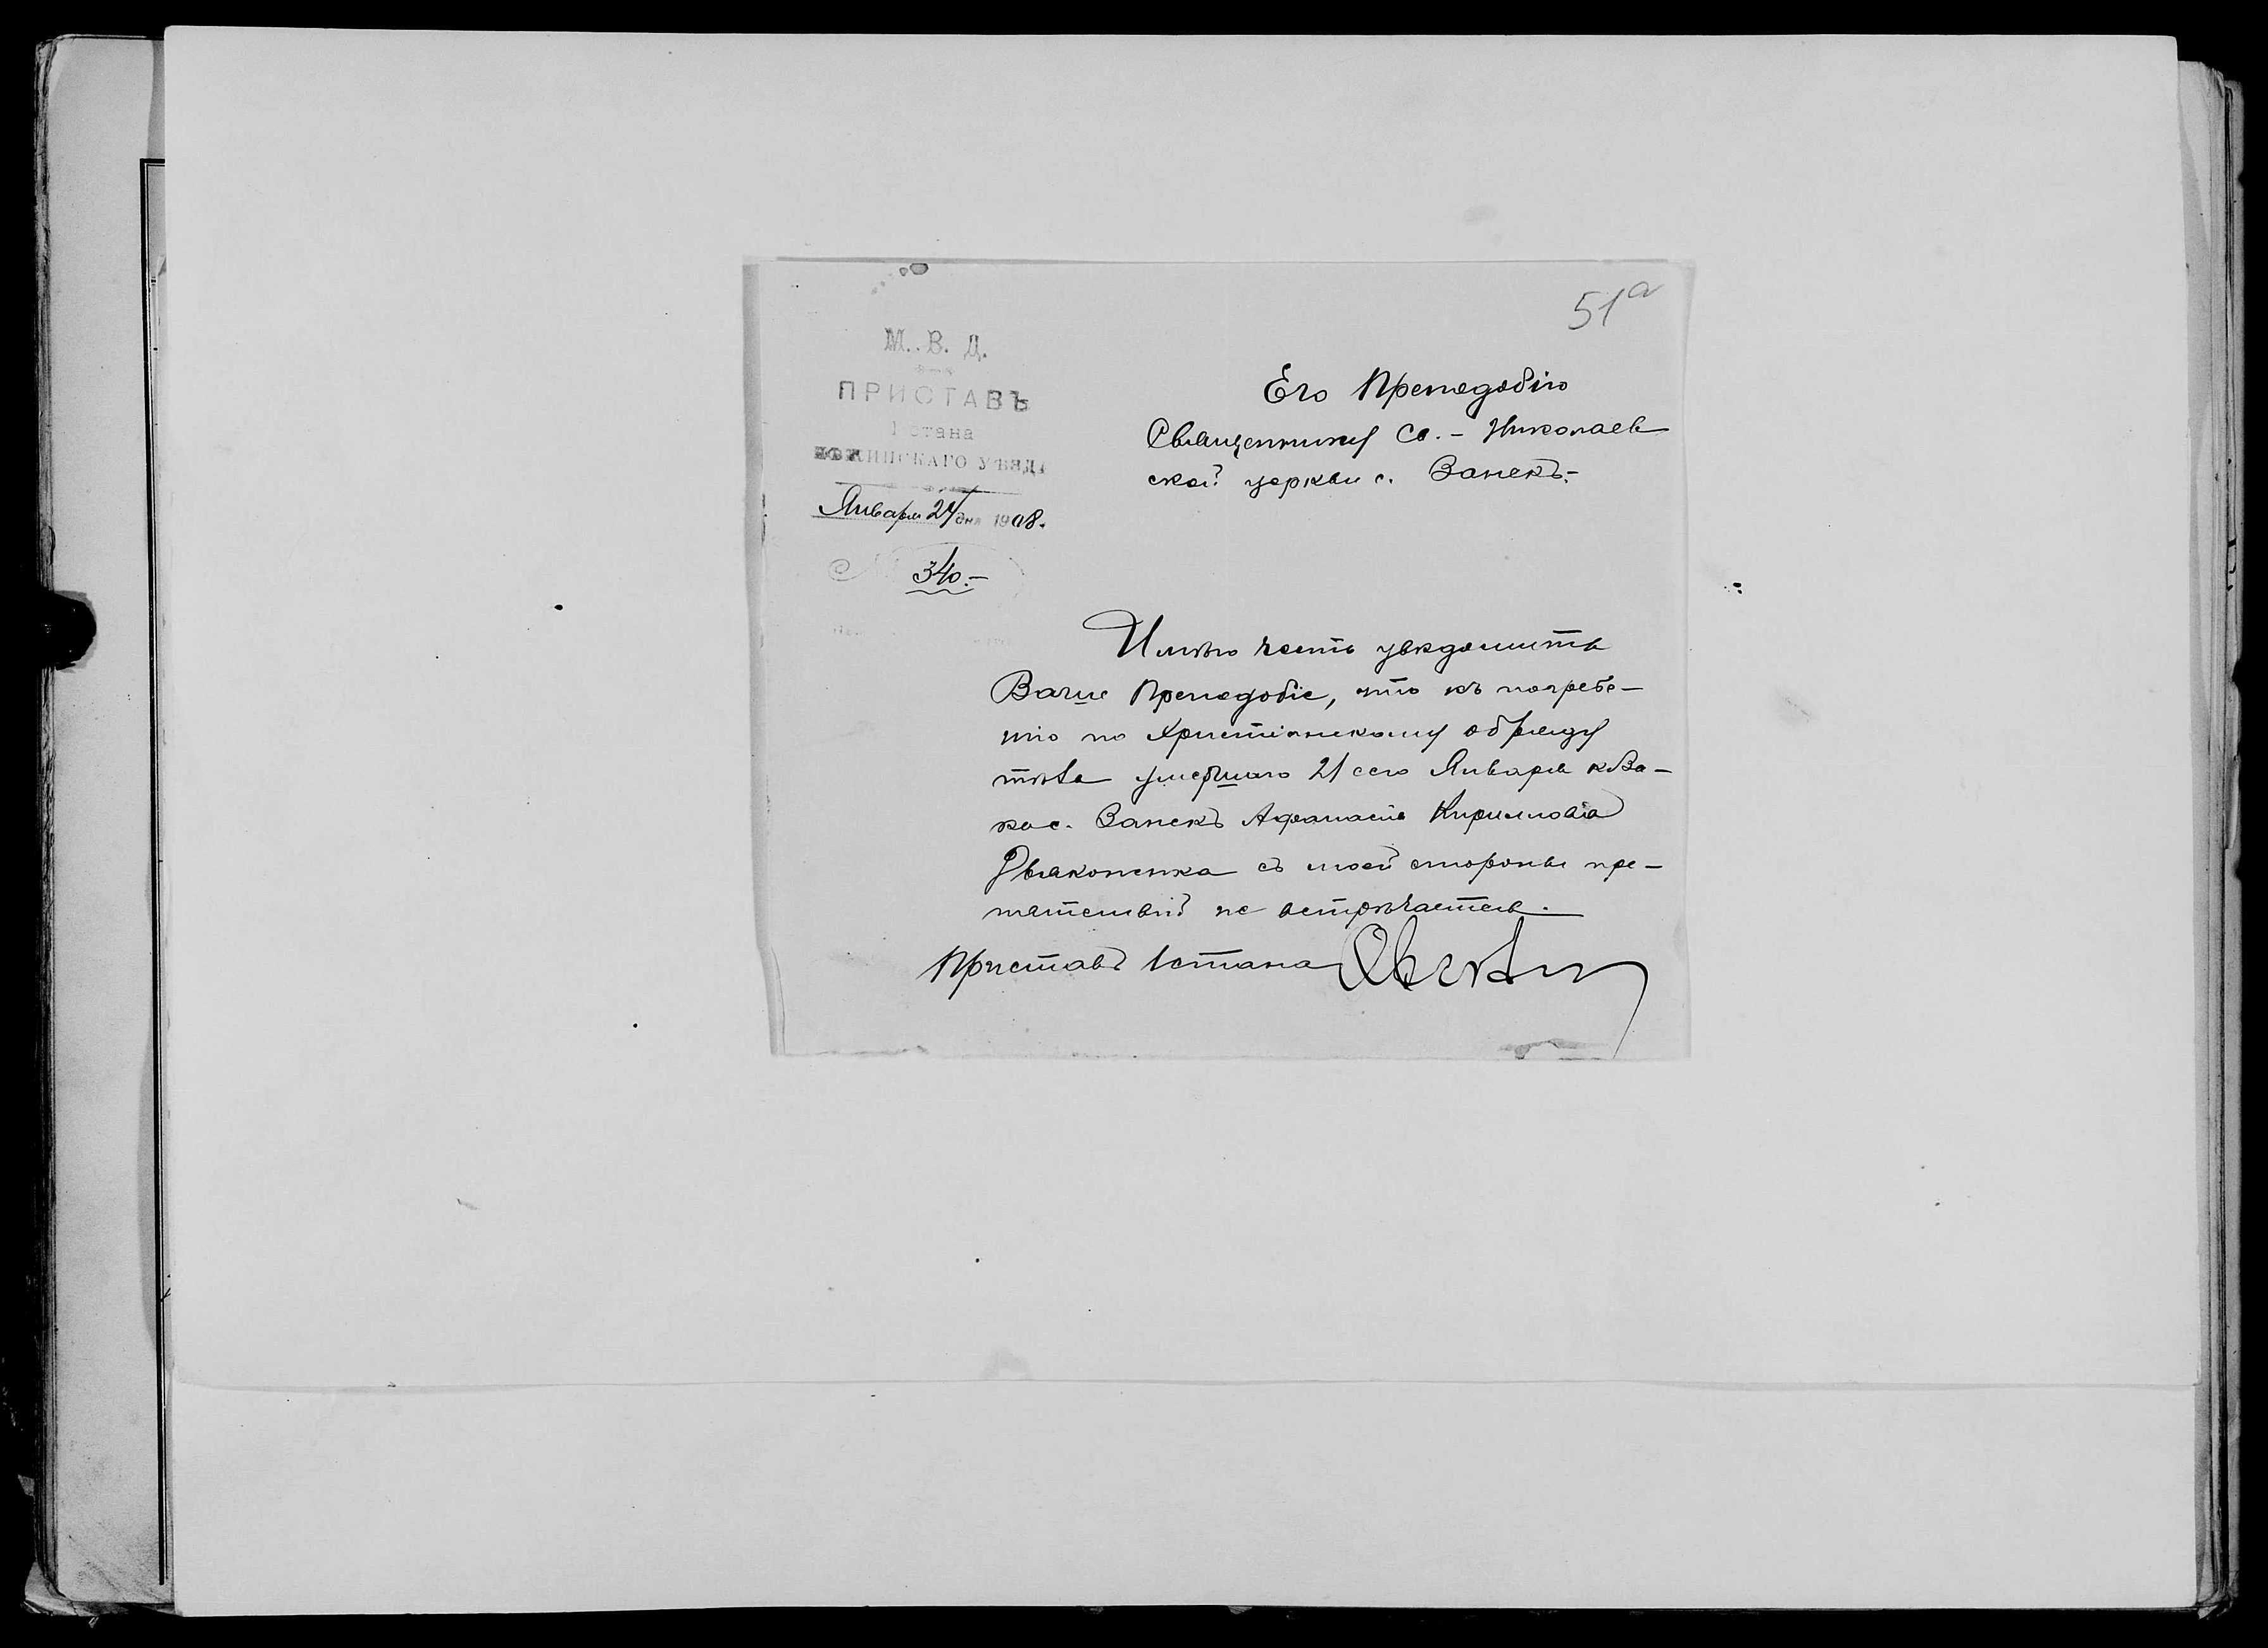 51а
М. В. Д.
ПРИСТАВЪ
1 стана
НѢЖИНСКАГО УѢЗДА
Января 24 дня 1908.
№ 340.-
Его Преподобію
Священнику Св.- Николаев
ской церкви с. Ванекъ.-
Имѣю честь увѣдомить
Ваше Преподобіе, что къ погребе-
нію по Христіанскому обряду
тѣла умершаго 21 сего Января
с. Ванекъ Афанасія Кириллова
Дьяконенка съ моей стороны пре-
пятствій не встрѣчается.
Приставъ 1 стана